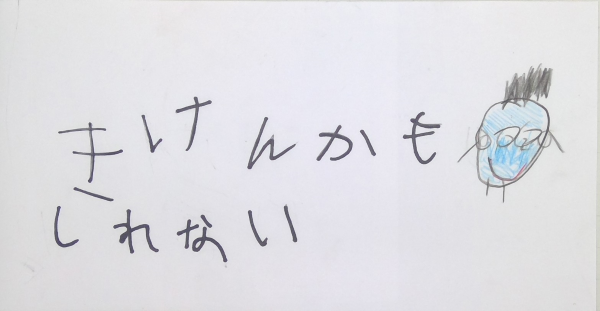 きけんかも
しれない